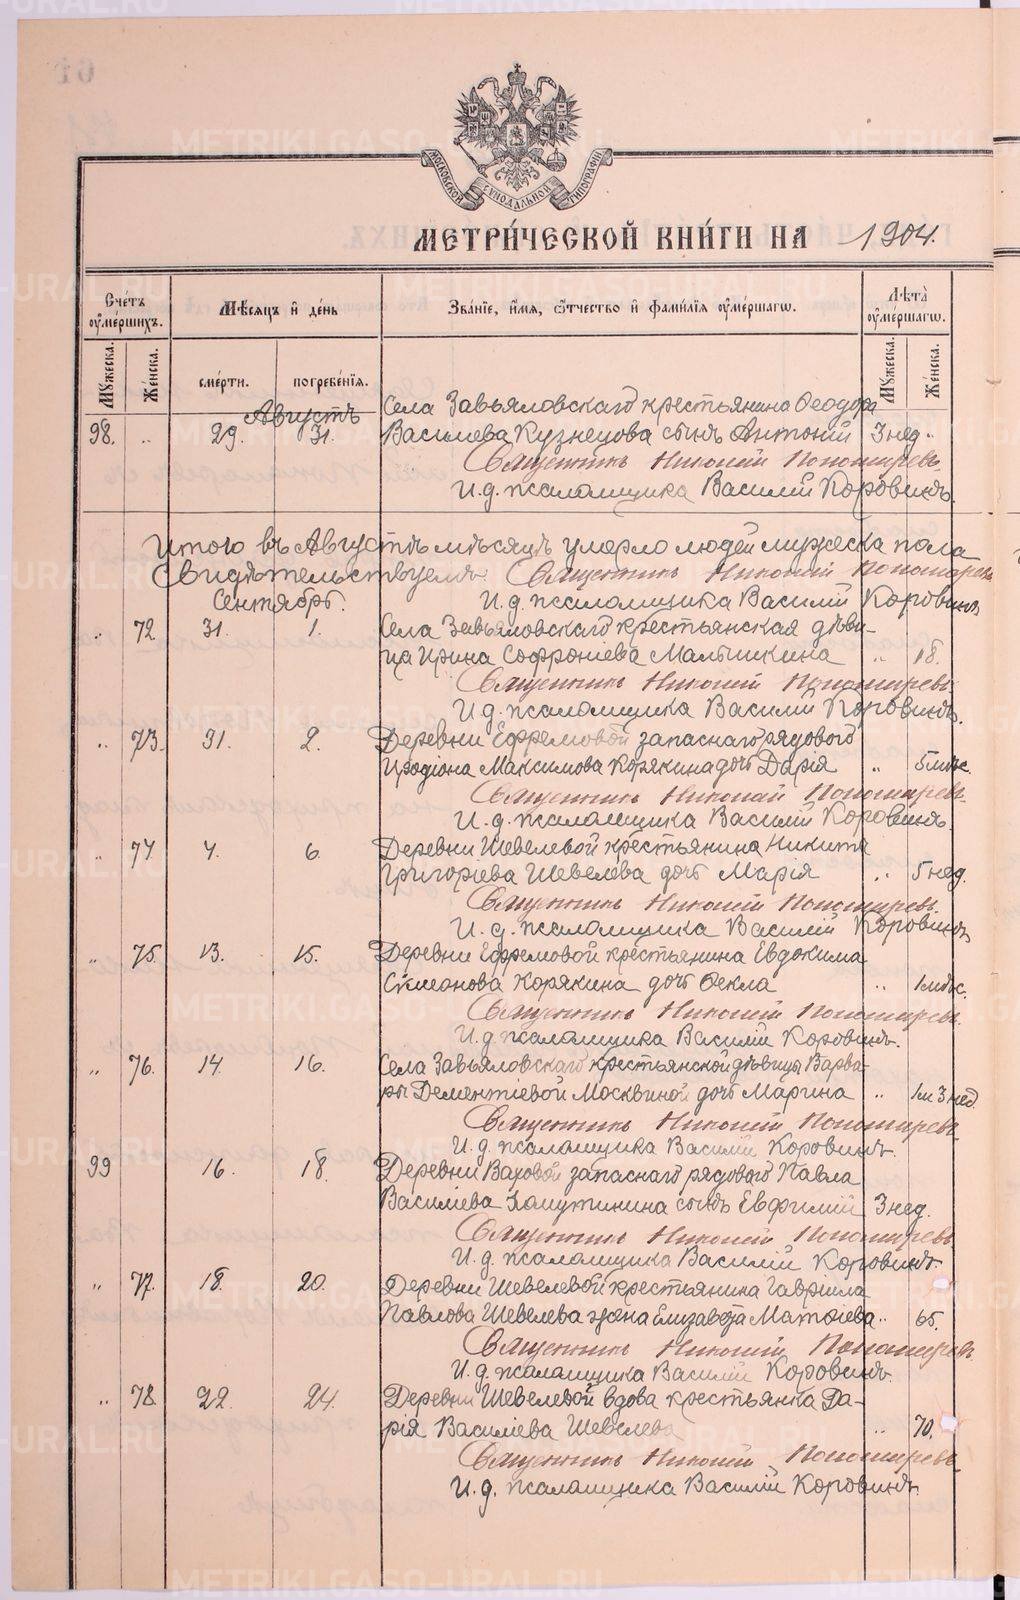 МОСКОВСКОЙ СѴНОДАЛЬНОЙ ТИПОГРАФІИ
МЕТРИ́ЧЕСКОЙ КНИ́ГИ НА 1904.
Сче́тъ оу҆ме́ршихъ.
Мѣ́сяцъ и҆ де́нь
Зва́нїе, и҆́мя, ѻ҆́тчество и҆ фами́лїя оу҆ме́ршагѡ.
Лѣ́та оу҆ме́ршагѡ.
Мꙋ́жеска.
Же́нска.
сме́рти.
погребе́нїѧ.
Мꙋ́жеска.
Же́нска.
Августъ
Села Завьяловскаго крестьянина Ѳеодора
98. „ 29. 31. Василіева Кузнецова сынъ Антоній 3 нед „
Священникъ Николай Пономаревъ
И.д. псаломщика Василій Коровинъ.
Итого въ Августѣ мѣсяцѣ умерло людей мужеска пола
Свидѣтельствуемъ: Священникъ Николай Пономаревъ
Сентябрь. И.д. псаломщика Василій Коровинъ
„ 72 31. 1. Села Завьяловскаго крестьянская дѣви-
ца Ирина Софроніева Малышкина „ 18.
Священникъ Николай Пономаревъ
И.д. псаломщика Василій Коровинъ.
„ 73. 31. 2. Деревни Ефремовой запаснаго рядового
Иродіона Максимова Корякина дочь Дарія „ 5 мѣс.
Священникъ Николай Пономаревъ
И.д. псаломщика Василій Коровинъ.
„ 74 4. 6. Деревни Шевелевой крестьянина Никиты
Григоріева Шевелева дочь Марія „ 5 нед.
Священникъ Николай Пономаревъ
И.д. псаломщика Василій Коровинъ
„ 75. 13. 15. Деревни Ефремовой крестьянина Евдокима
Симеонова Корякина дочь Ѳекла „ 1 мѣс.
Священникъ Николай Пономаревъ.
И.д. псаломщика Василій Коровинъ.
„ 76. 14. 16. Села Завьяловскаго крестьянской дѣвицы Варва-
ры Дементіевой Москвиной дочь Марина „ 1 м 3 нед
Священникъ Николай Пономаревъ
И.д. псаломщика Василій Коровинъ.
99 16. 18. Деревни Ваховой запаснаго рядового Павла
Василіева сынъ Евфимій 3 нед.
Священникъ Николай Пономаревъ
И.д. псаломщика Василій Коровинъ
„ 77. 18. 20. Деревни Шевелевой крестьянина Гавріила
Павлова Шевелева жена Елизавета Матѳіева „ 65.
Священникъ Николай Пономаревъ
И.д. псаломщика Василій Коровинъ.
„ 78. 22. 24. Деревни Шевелевой вдова крестьянка Да-
рія Василіева Шевелева „ 70.
Священникъ Николай Пономаревъ
И.д. псаломщика Василій Коровинъ.
METRIKI.GASO-URAL.RU